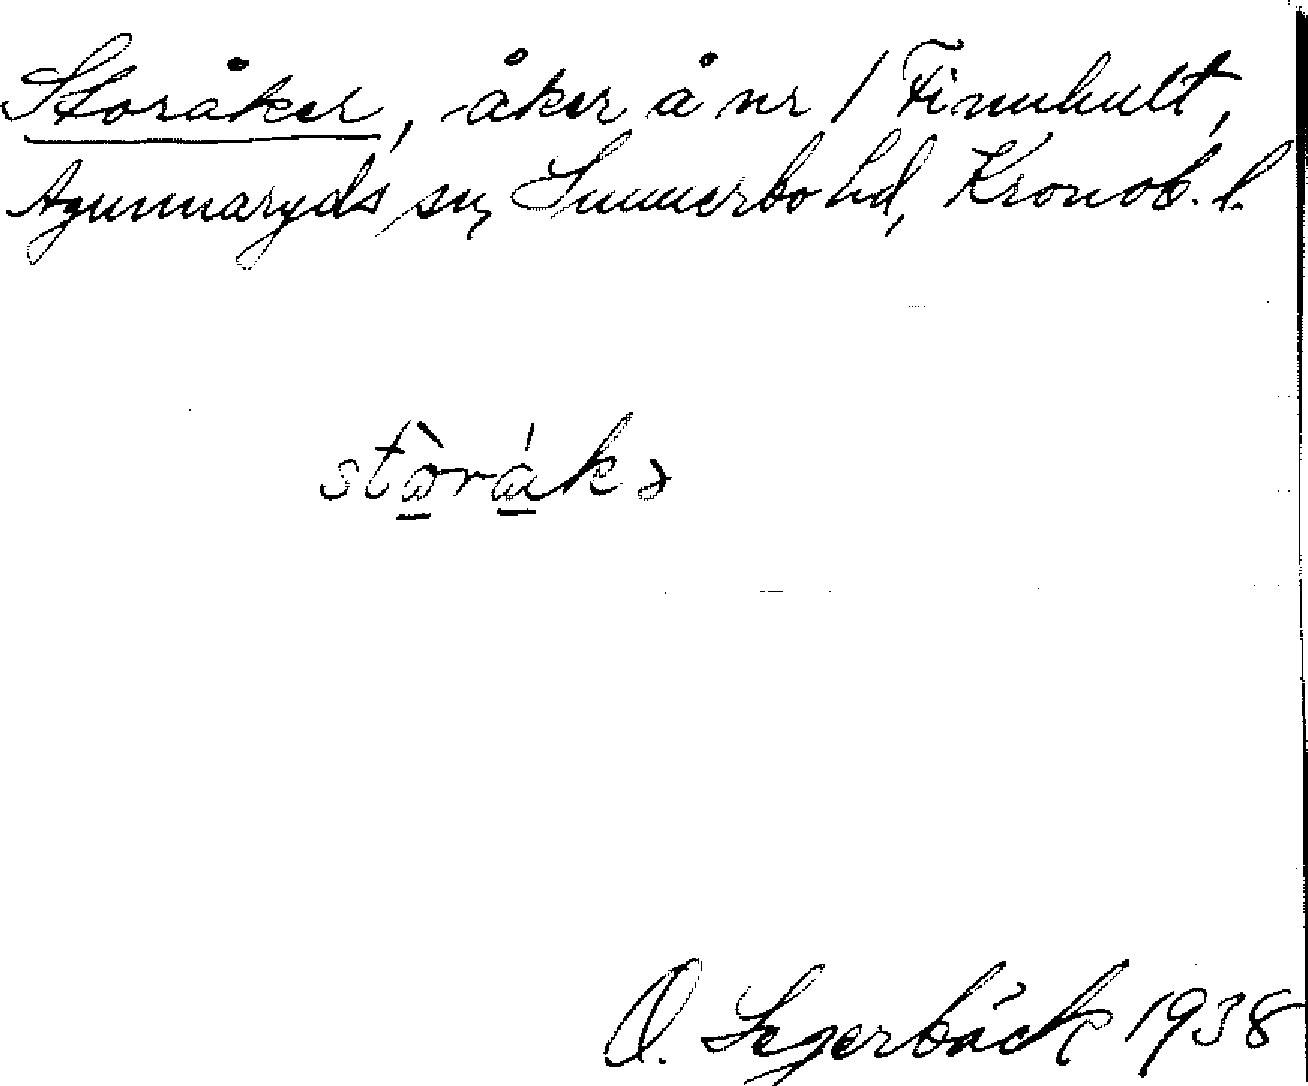 Storåker, åker å nr 1 Finnhult,
Agunnaryds sn, Sunnerbo hd, Kronob. l.
stòråkə
O. Segerbäck 1938